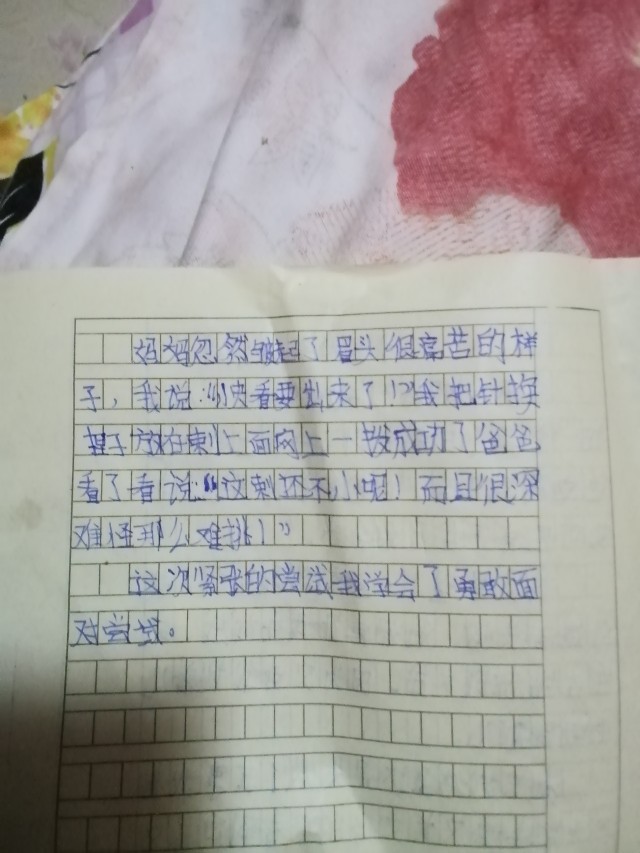 妈妈忽然皱起了眉头很痛苦的样
子，我说：“快看要出来了！”我把针换
镊子放在刺上面网上一拔成功了爸爸
看了看说：“这刺还不小呢！而且很深
难怪那么难挑！”
这次紧张的尝试我学会了勇敢面
对尝试。